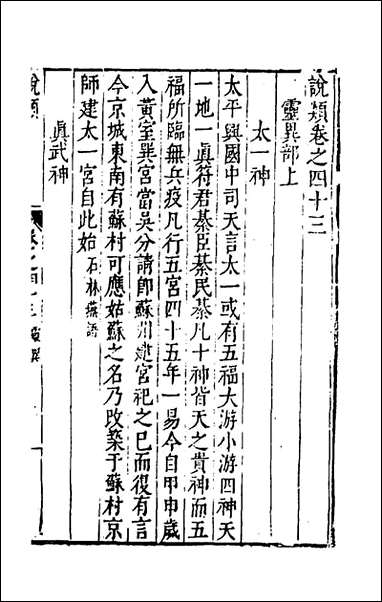 說類卷之四十三
靈異部上
太一神
太平興國中司天言太一或有五福大游小游四神天
一地一真符君綦臣綦民綦凡十神皆天之貴神而五
福所臨無兵疫凡行五宮四十五年一易今自甲申歲
入黃室巽宮當吳分請即蘇州建宮祀之已而復有言
今京城東南有蘇村可應姑蘇之名乃改築于蘇村京
師建太一宮自此始石林燕語
真武神
說類